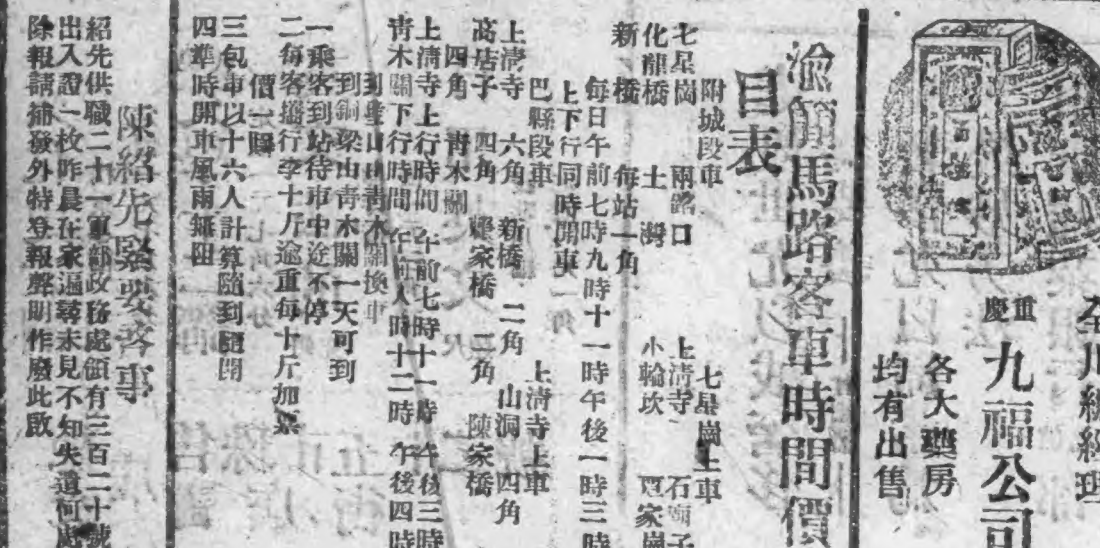 全川總經理
重慶 九福公司
各大藥房
均有出售
渝簡馬路客車時間價
目表
附城段車 七星崗上車
七星崗 兩路口 上清寺 石廟子
化龍橋 土灣 小龍坎
新橋 每站一角
每日午前七時九時十一時午後一時三時
上下行同時開車
巴縣段車 上清寺上車
上清寺 六角 新橋 二角 山洞 四角
高店子 四角 賴家橋 二角 陳家橋
四角 青木關
上清寺上行時間 午前七時十一時 午後三時
青木關下行時間 午前八時十二時 午後四時
到璧山由青木關換車
到銅梁由青木關一天可到
一乘客到站待車中途不停
二每客攜行李十斤逾重每十斤加票
價一
三包車以十六人計算隨到隨開
四準時開車風雨無阻
陳紹先緊要啓事
紹先供職二十一軍部政務處領有三百二十號
出入證一枚昨晨在家遍尋未見不知失遺何處
除報請補發外特登報聲明作廢此啟